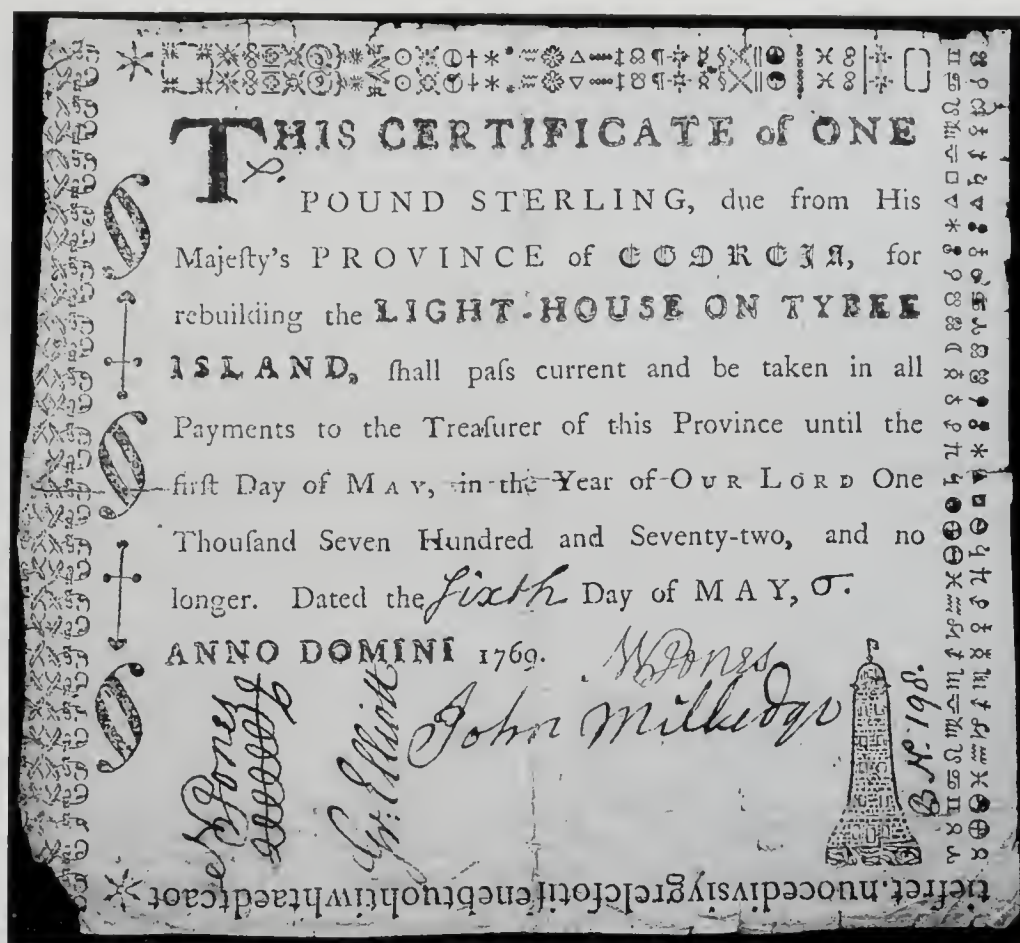 THIS CERTIFICATE of ONE
POUND STERLING, due from His
Majeſty's PROVINCE of GEORGIA, for
rebuilding the LIGHT-HOUSE ON TYBEE
ISLAND, ſhall paſs current and be taken in all
Payments to the Treaſurer of this Province until the
firſt Day of MAY, in the Year of OUR LORD One
Thouſand Seven Hundred and Seventy-two, and no
longer. Dated the ſixth Day of MAY,
ANNO DOMINI 1769. WJones
John Milledge
NJones
Gr. Elliott
B. No. 198.